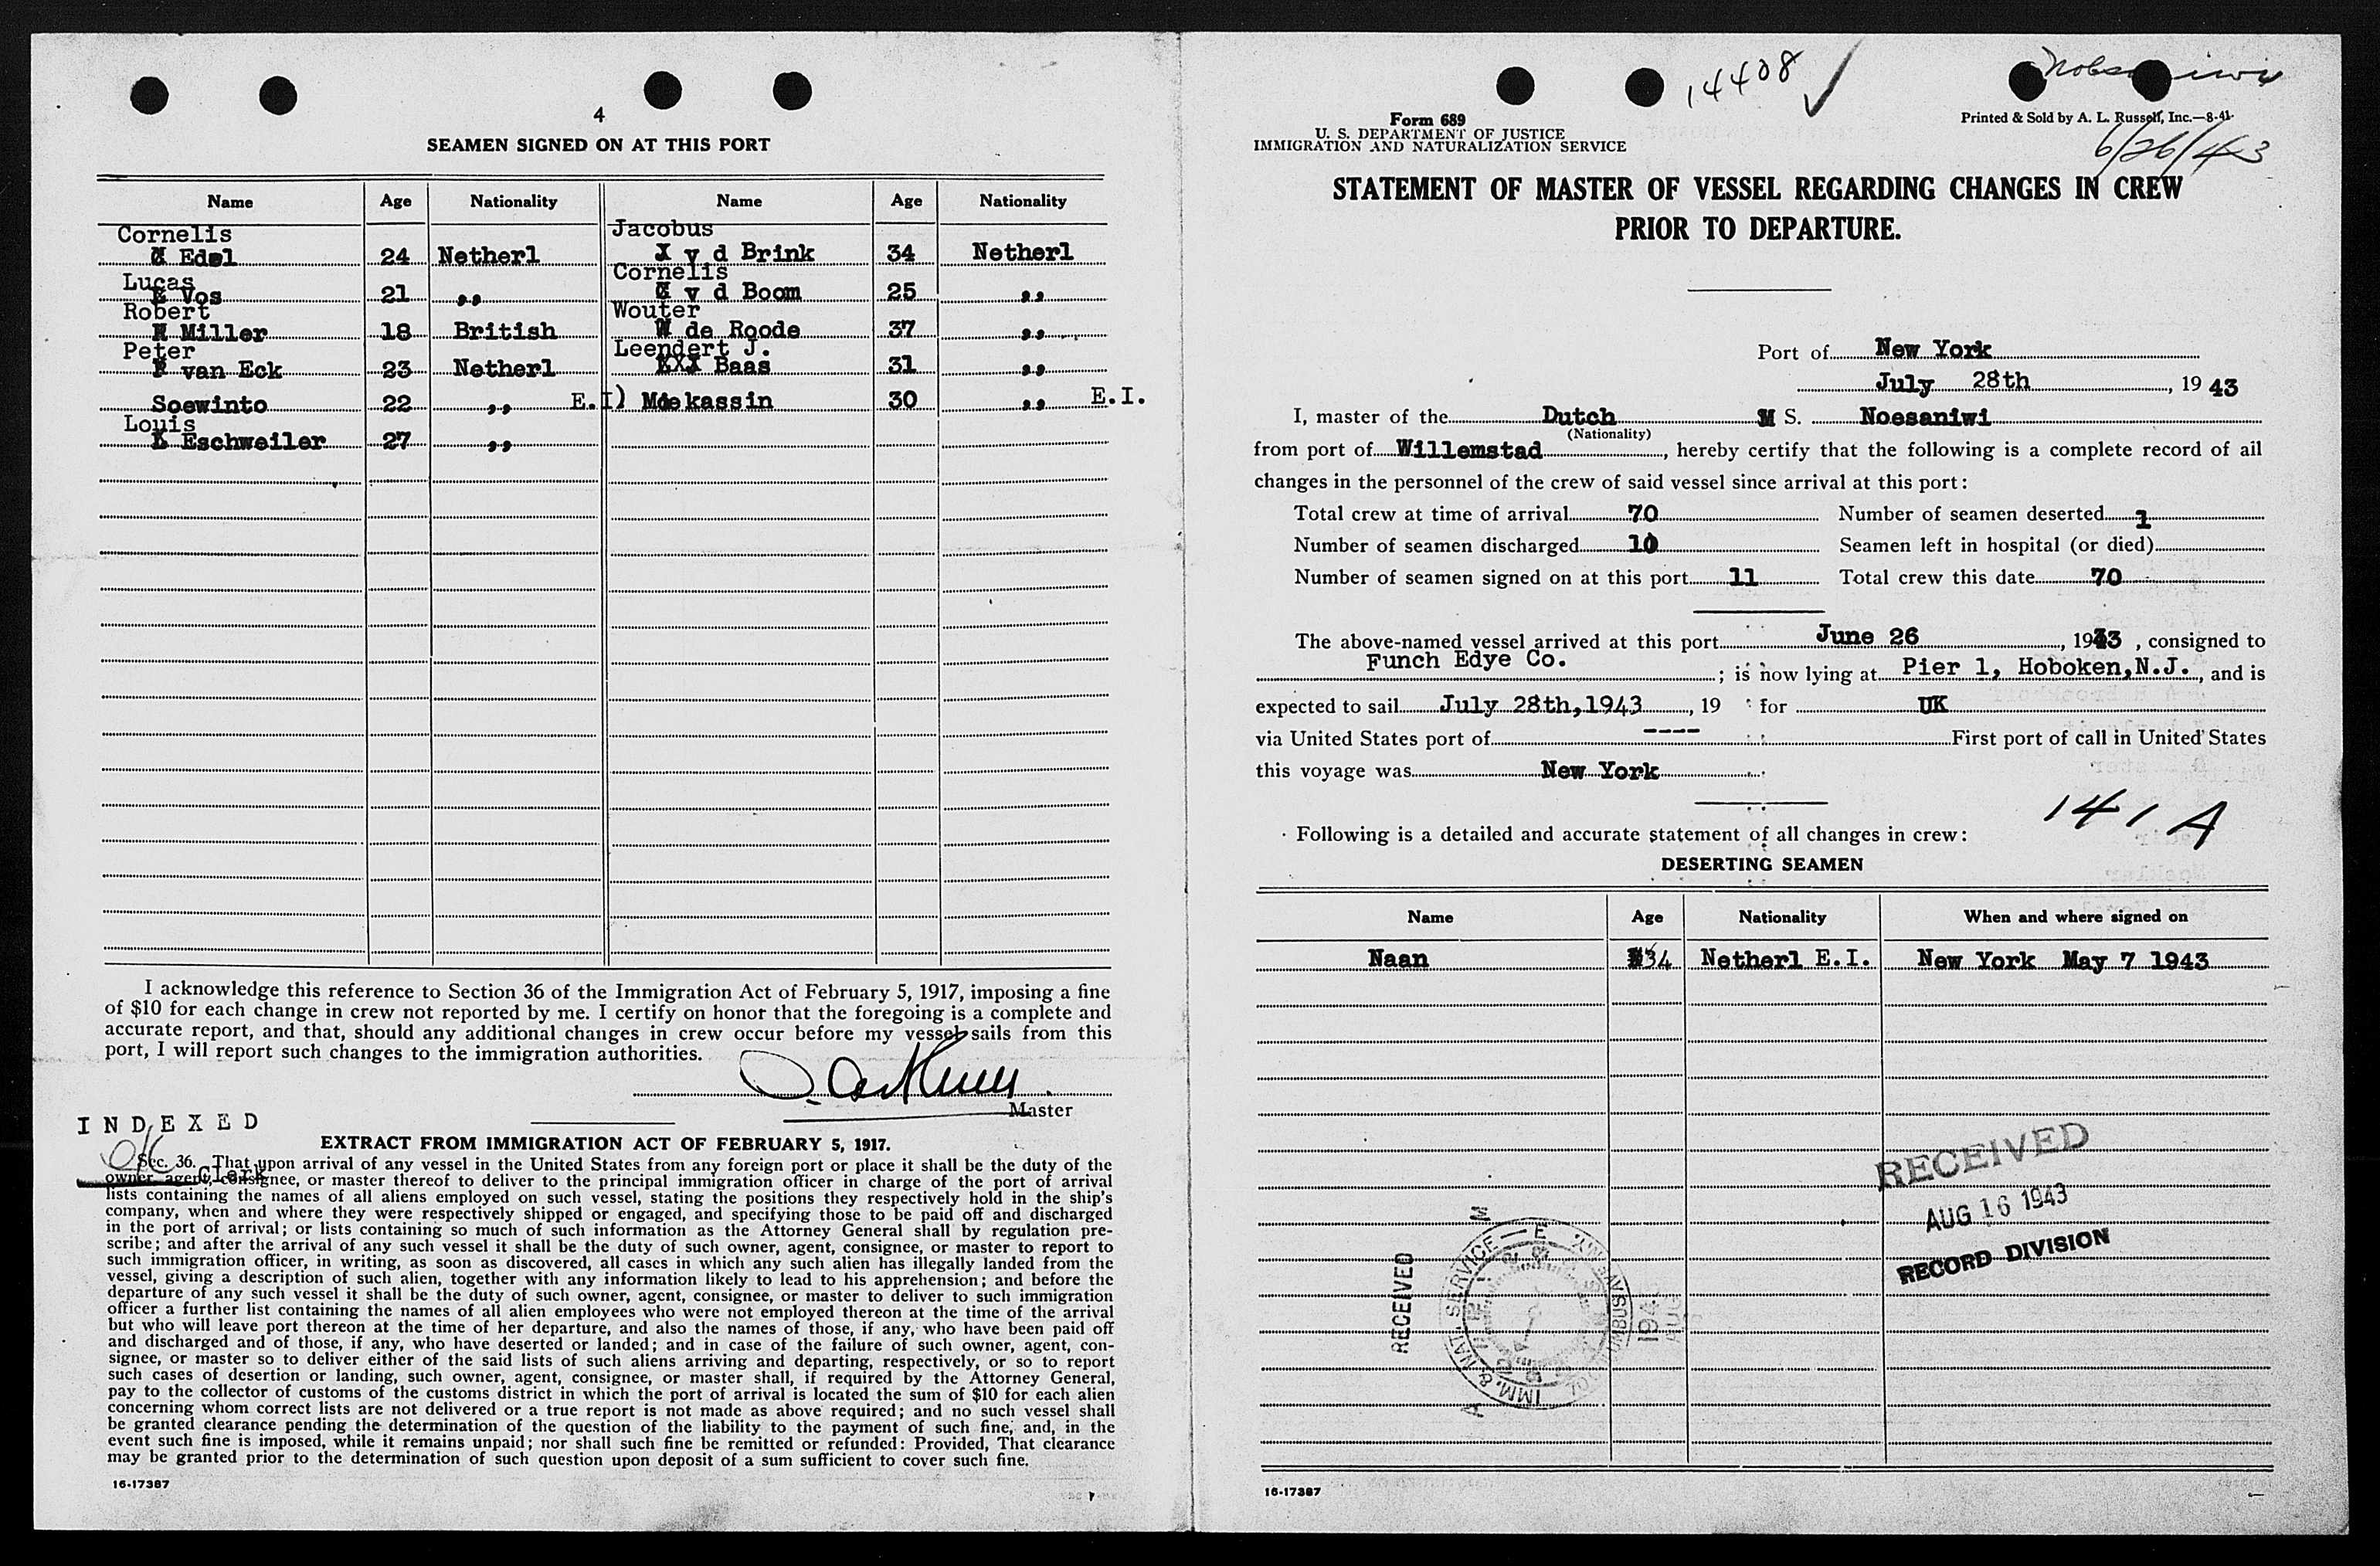 4
SEAMEN SIGNED ON AT THIS PORT
Name Age Nationality Name Age Nationality
Cornelis Jacobus
Edel 24 Netherl v d Brink 34 Netherl
Lucas Cornelis
Vos 21 ,, v d Boom 25 ,,
Robert Wouter
Miller 18 British de Roode 37 ,,
Peter Leendert J.
van Eck 23 Netherl Baas 31 ,,
Soewinto 22 ,, E.I) Moekassin 30 ,, E.I.
Louis
Eschweiler 27 ,,
I acknowledge this reference to Section 36 of the Immigration Act of February 5, 1917, imposing a fine
of $10 for each change in crew not reported by me. I certify on honor that the foregoing is a complete and
accurate report, and that, should any additional changes in crew occur before my vessel sails from this
port, I will report such changes to the immigration authorities.
Master
INDEXED
EXTRACT FROM IMMIGRATION ACT OF FEBRUARY 5, 1917.
Sec. 36. That upon arrival of any vessel in the United States from any foreign port or place it shall be the duty of the
owner, agent, consignee, or master thereof to deliver to the principal immigration officer in charge of the port of arrival
Clerk
lists containing the names of all aliens employed on such vessel, stating the positions they respectively hold in the ship's
company, when and where they were respectively shipped or engaged, and specifying those to be paid off and discharged
in the port of arrival; or lists containing so much of such information as the Attorney General shall by regulation pre-
scribe; and after the arrival of any such vessel it shall be the duty of such owner, agent, consignee, or master to report to
such immigration officer, in writing, as soon as discovered, all cases in which any such alien has illegally landed from the
vessel, giving a description of such alien, together with any information likely to lead to his apprehension; and before the
departure of any such vessel it shall be the duty of such owner, agent, consignee, or master to deliver to such immigration
officer a further list containing the names of all alien employees who were not employed thereon at the time of the arrival
but who will leave port thereon at the time of her departure, and also the names of those, if any, who have been paid off
and discharged and of those, if any, who have deserted or landed; and in case of the failure of such owner, agent, con-
signee, or master so to deliver either of the said lists of such aliens arriving and departing, respectively, or so to report
such cases of desertion or landing, such owner, agent, consignee, or master shall, if required by the Attorney General,
pay to the collector of customs of the customs district in which the port of arrival is located the sum of $10 for each alien
concerning whom correct lists are not delivered or a true report is not made as above required; and no such vessel shall
be granted clearance pending the determination of the question of the liability to the payment of such fine, and, in the
event such fine is imposed, while it remains unpaid; nor shall such fine be remitted or refunded: Provided, That clearance
may be granted prior to the determination of such question upon deposit of a sum sufficient to cover such fine.
16-17387
14408
Form 689
U. S. DEPARTMENT OF JUSTICE
IMMIGRATION AND NATURALIZATION SERVICE
Printed & Sold by A. L. Russell, Inc.—8-41
6/26/43
STATEMENT OF MASTER OF VESSEL REGARDING CHANGES IN CREW
PRIOR TO DEPARTURE.
Port of New York
July 28th, 1943
I, master of the Dutch M S. Noesaniwi
(Nationality)
from port of Willemstad, hereby certify that the following is a complete record of all
changes in the personnel of the crew of said vessel since arrival at this port:
Total crew at time of arrival 70 Number of seamen deserted 1
Number of seamen discharged 10 Seamen left in hospital (or died)
Number of seamen signed on at this port 11 Total crew this date 70
The above-named vessel arrived at this port June 26, 1943, consigned to
Funch Edye Co.; is now lying at Pier 1, Hoboken,N.J., and is
expected to sail July 28th,1943, 19 for UK
via United States port of ---- First port of call in United States
this voyage was New York
141 A
Following is a detailed and accurate statement of all changes in crew:
DESERTING SEAMEN
Name Age Nationality When and where signed on
Naan 34 Netherl E.I. New York May 7 1943
RECEIVED
AUG 16 1943
RECORD DIVISION
RECEIVED
IMM. & NAT. SERVICE
1943
AUG
16-17387